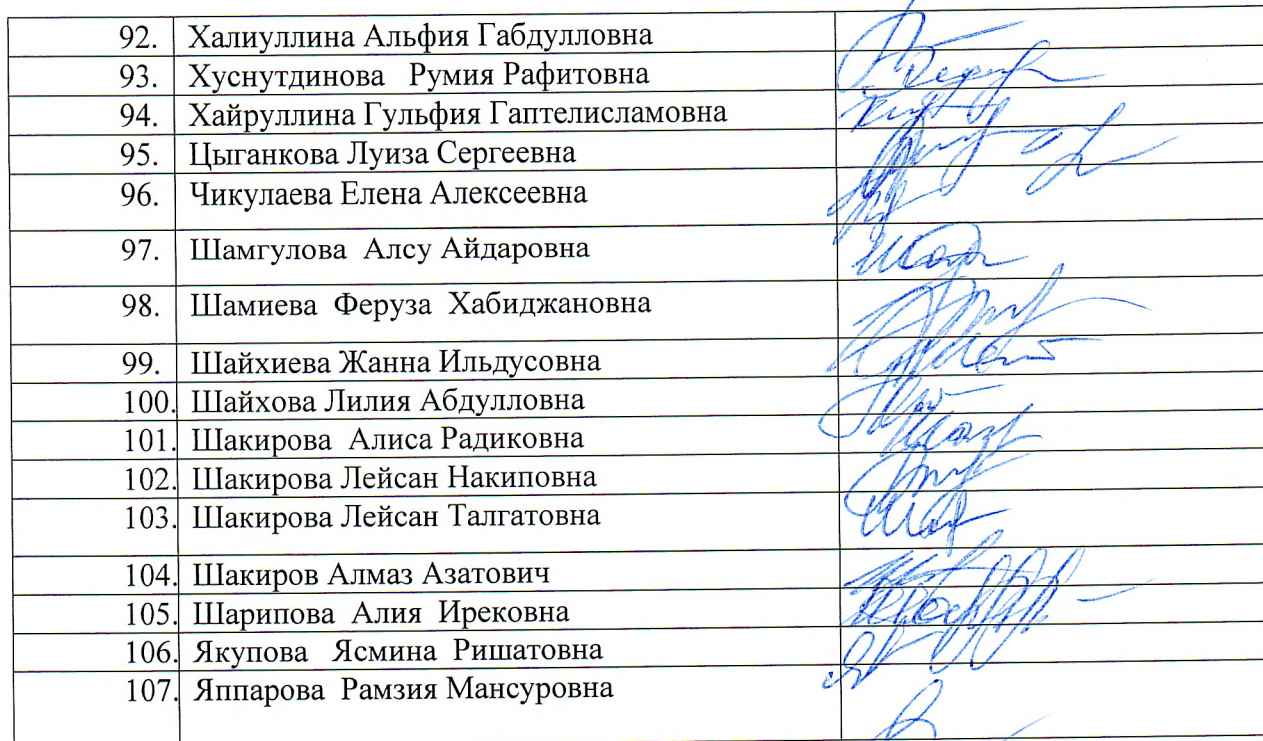 92. Халиуллина Альфия Габдулловна
93. Хуснутдинова Румия Рафитовна
94. Хайруллина Гульфия Гаптелисламовна
95. Цыганкова Луиза Сергеевна
96. Чикулаева Елена Алексеевна
97. Шамгулова Алсу Айдаровна
98. Шамиева Феруза Хабиджановна
99. Шайхиева Жанна Ильдусовна
100. Шайхова Лилия Абдулловна
101. Шакирова Алиса Радиковна
102. Шакирова Лейсан Накиповна
103. Шакирова Лейсан Талгатовна
104. Шакиров Алмаз Азатович
105. Шарипова Алия Ирековна
106. Якупова Ясмина Ришатовна
107. Яппарова Рамзия Мансуровна